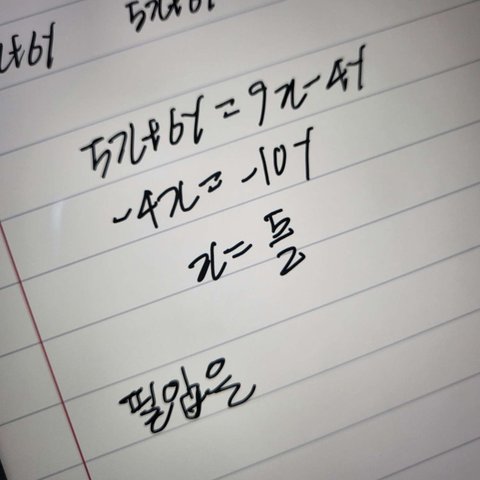 5x+6y
5x+6y = 9x-4y
-4x = -10y
x = 5/2
필압은